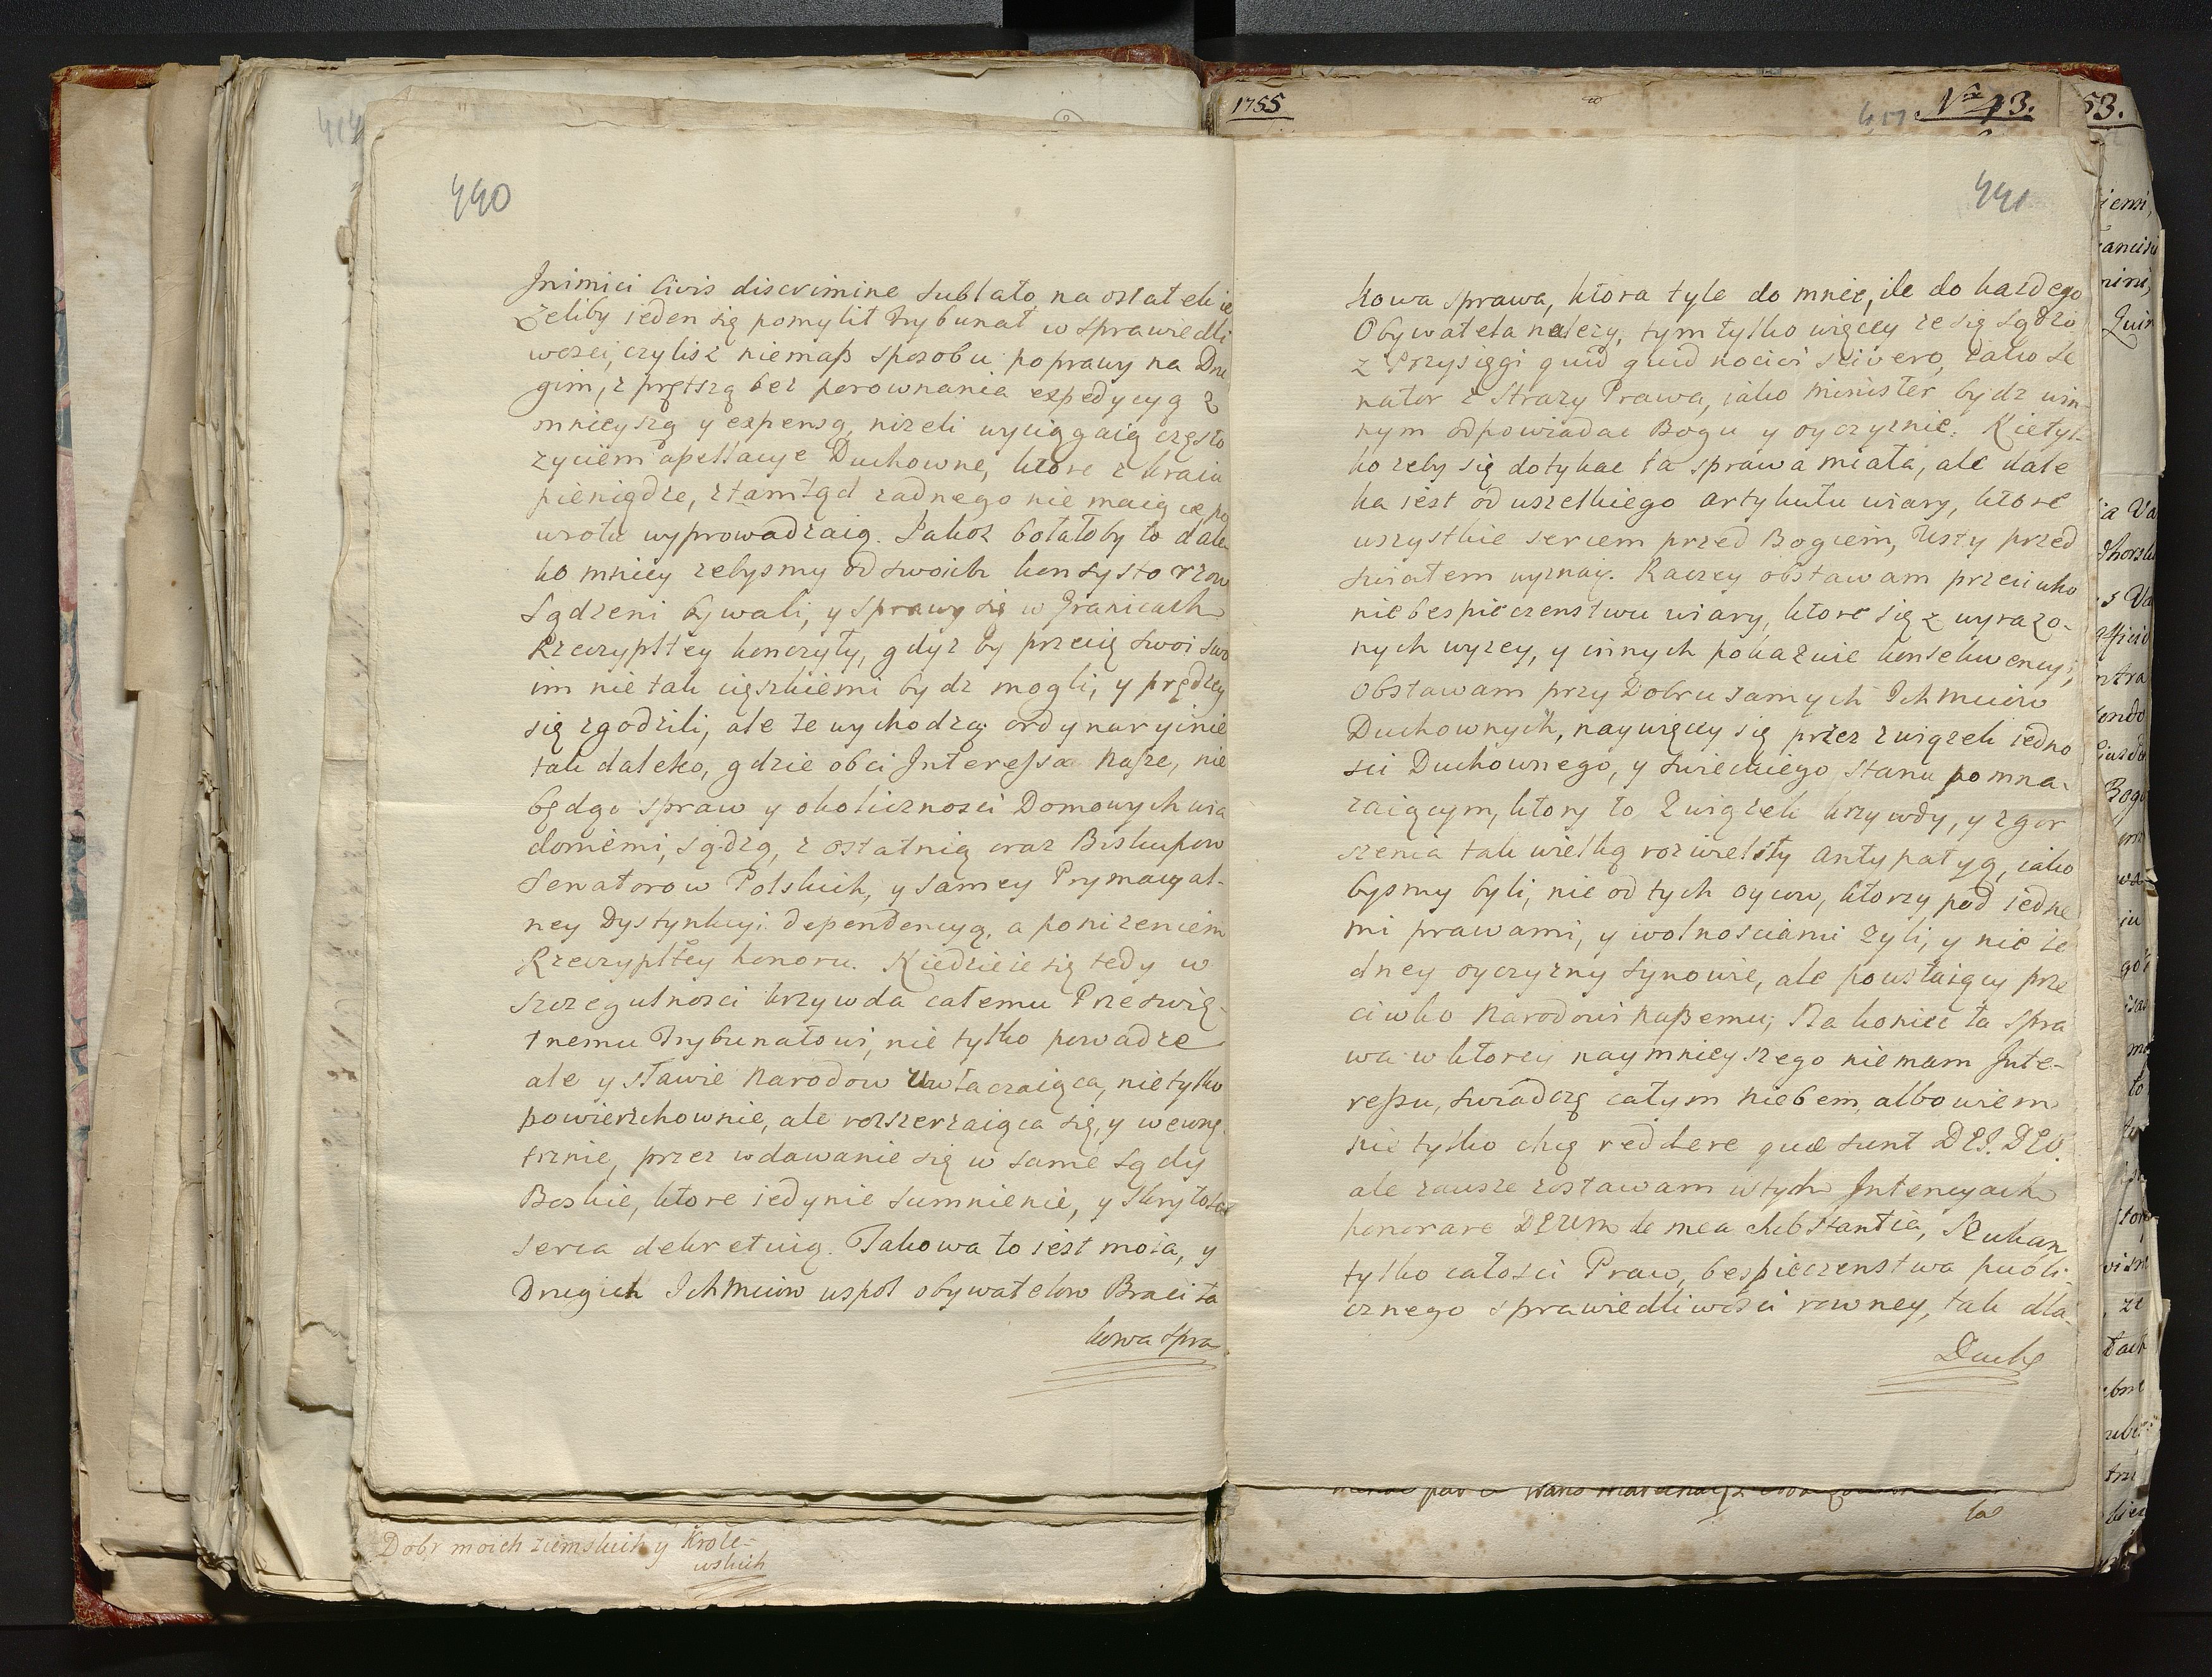 440
Inimici Civis discrimine sublato, na ostatek ie
żeliby ieden się pomylił Trybunał w sprawiedli
wosci, czylisz niemaß sposobu poprawy na Dru
gim, z prętszą bez porownania expedycyą z
mnieyszą y expensą, nizeli wyciągaią często
zyciem apellacye Duchowne, ktore z kraiu
pieniądze, ztamtąd zadnego nie maiące po
wrotu wyprowadzaią. Jakoż bolałoby to dale
ko mniey zebysmy od swoich konsystorzow
Sądzeni bywali, y sprawy się w Granicach
Rzeczypltey konczyły, gdyz by przecię swoi swo
im nie tak cięszkiemi bydz mogli, y prędzey
się zgodzili, ale te wychodzą ordynaryinie
tak daleko, gdzie obci Interessa Nasze, nie
będąc spraw y okolicznosci Domowych wia
domemi, sądzą, z ostatnią oraz Biskupow
Senatorow Polskich, y samey Prymacyal-
ney Dystynkcyi dependencyą, a ponizeniem
Rzeczypltey honoru. Kiedzieie się tedy w
szczegulnosci krzywda całemu Przeswię-
tnemu Trybunałowi, nie tylko powadze
ale y sławie Narodow uwłaczaiąca, nie tylko
powierzchownie, ale rozszerzaiąca się, y wewnę
trznie, przez wdawanie się w same Sądy
Boskie, ktore iedynie sumnienie, y skrytosci
serca dekretuią. Takowa to iest moia, y
Drugich Ichmciow wspol obywatelow Braci ta
kowa spra
Dobr moich ziemskich y Krole-
wskich
1755
Nro 13.
53.
441
kowa sprawa, ktora tyle do mnie, ile do kazdego
Obywatela nalezy, tym tylko więcey ze się sądzę
z Przysięgi quid quid nocivi scivero, iako Se
nator z Strazy Prawa, iako Minister bydz win-
nym odpowiadac Bogu y oyczyznie. Nietyl-
ko zeby się dotykac ta sprawa miała, ale dale
ka iest od wszelkiego artykułu wiary, ktore
wszystkie sercem przed Bogiem, Usty przed
swiatem wyznaię. Raczey obstawam przeciwko
niebespieczenstwu wiary, ktore się z wyrazo-
nych wyzey, y innych pokazuie konsekwencyi,
Obstawam przy Dobru samych Ichmciow
Duchownych, naywięcey się przez związek iedno
sci Duchownego, y swieckiego stanu pomna-
zaiącym, ktory to Związek krzywdy, y zgor
szenia tak wielką rozwielity antypatyą, iako
bysmy byli, nie od tych oycow, ktorzy pod iedne
mi prawami, y wolnosciami zyli, y nie ie
dney oyczyzny synowie, ale powstaiący prze
ciwko Narodowi Naßemu; Na koniec ta spra
wa w ktorey naymnieyszego niemam Inte-
ressu, swiadczę całym Niebem, albowiem
nie tylko chcę reddere quæ sunt DEI. DEO.
ale zausze zostawam w tych Intencyach
honorare DEUM de mea substantia, Szukam
tylko całosci Praw, bespieczenstwa publi-
cznego sprawiedliwosci rowney, tak dla
Ducho